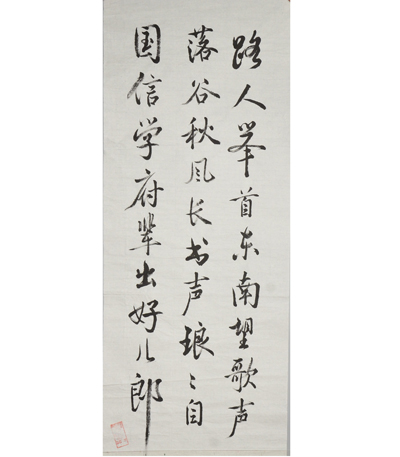 路人举首东南望歌声
落谷秋风长书声琅〻自
国信学府辈出好儿郎